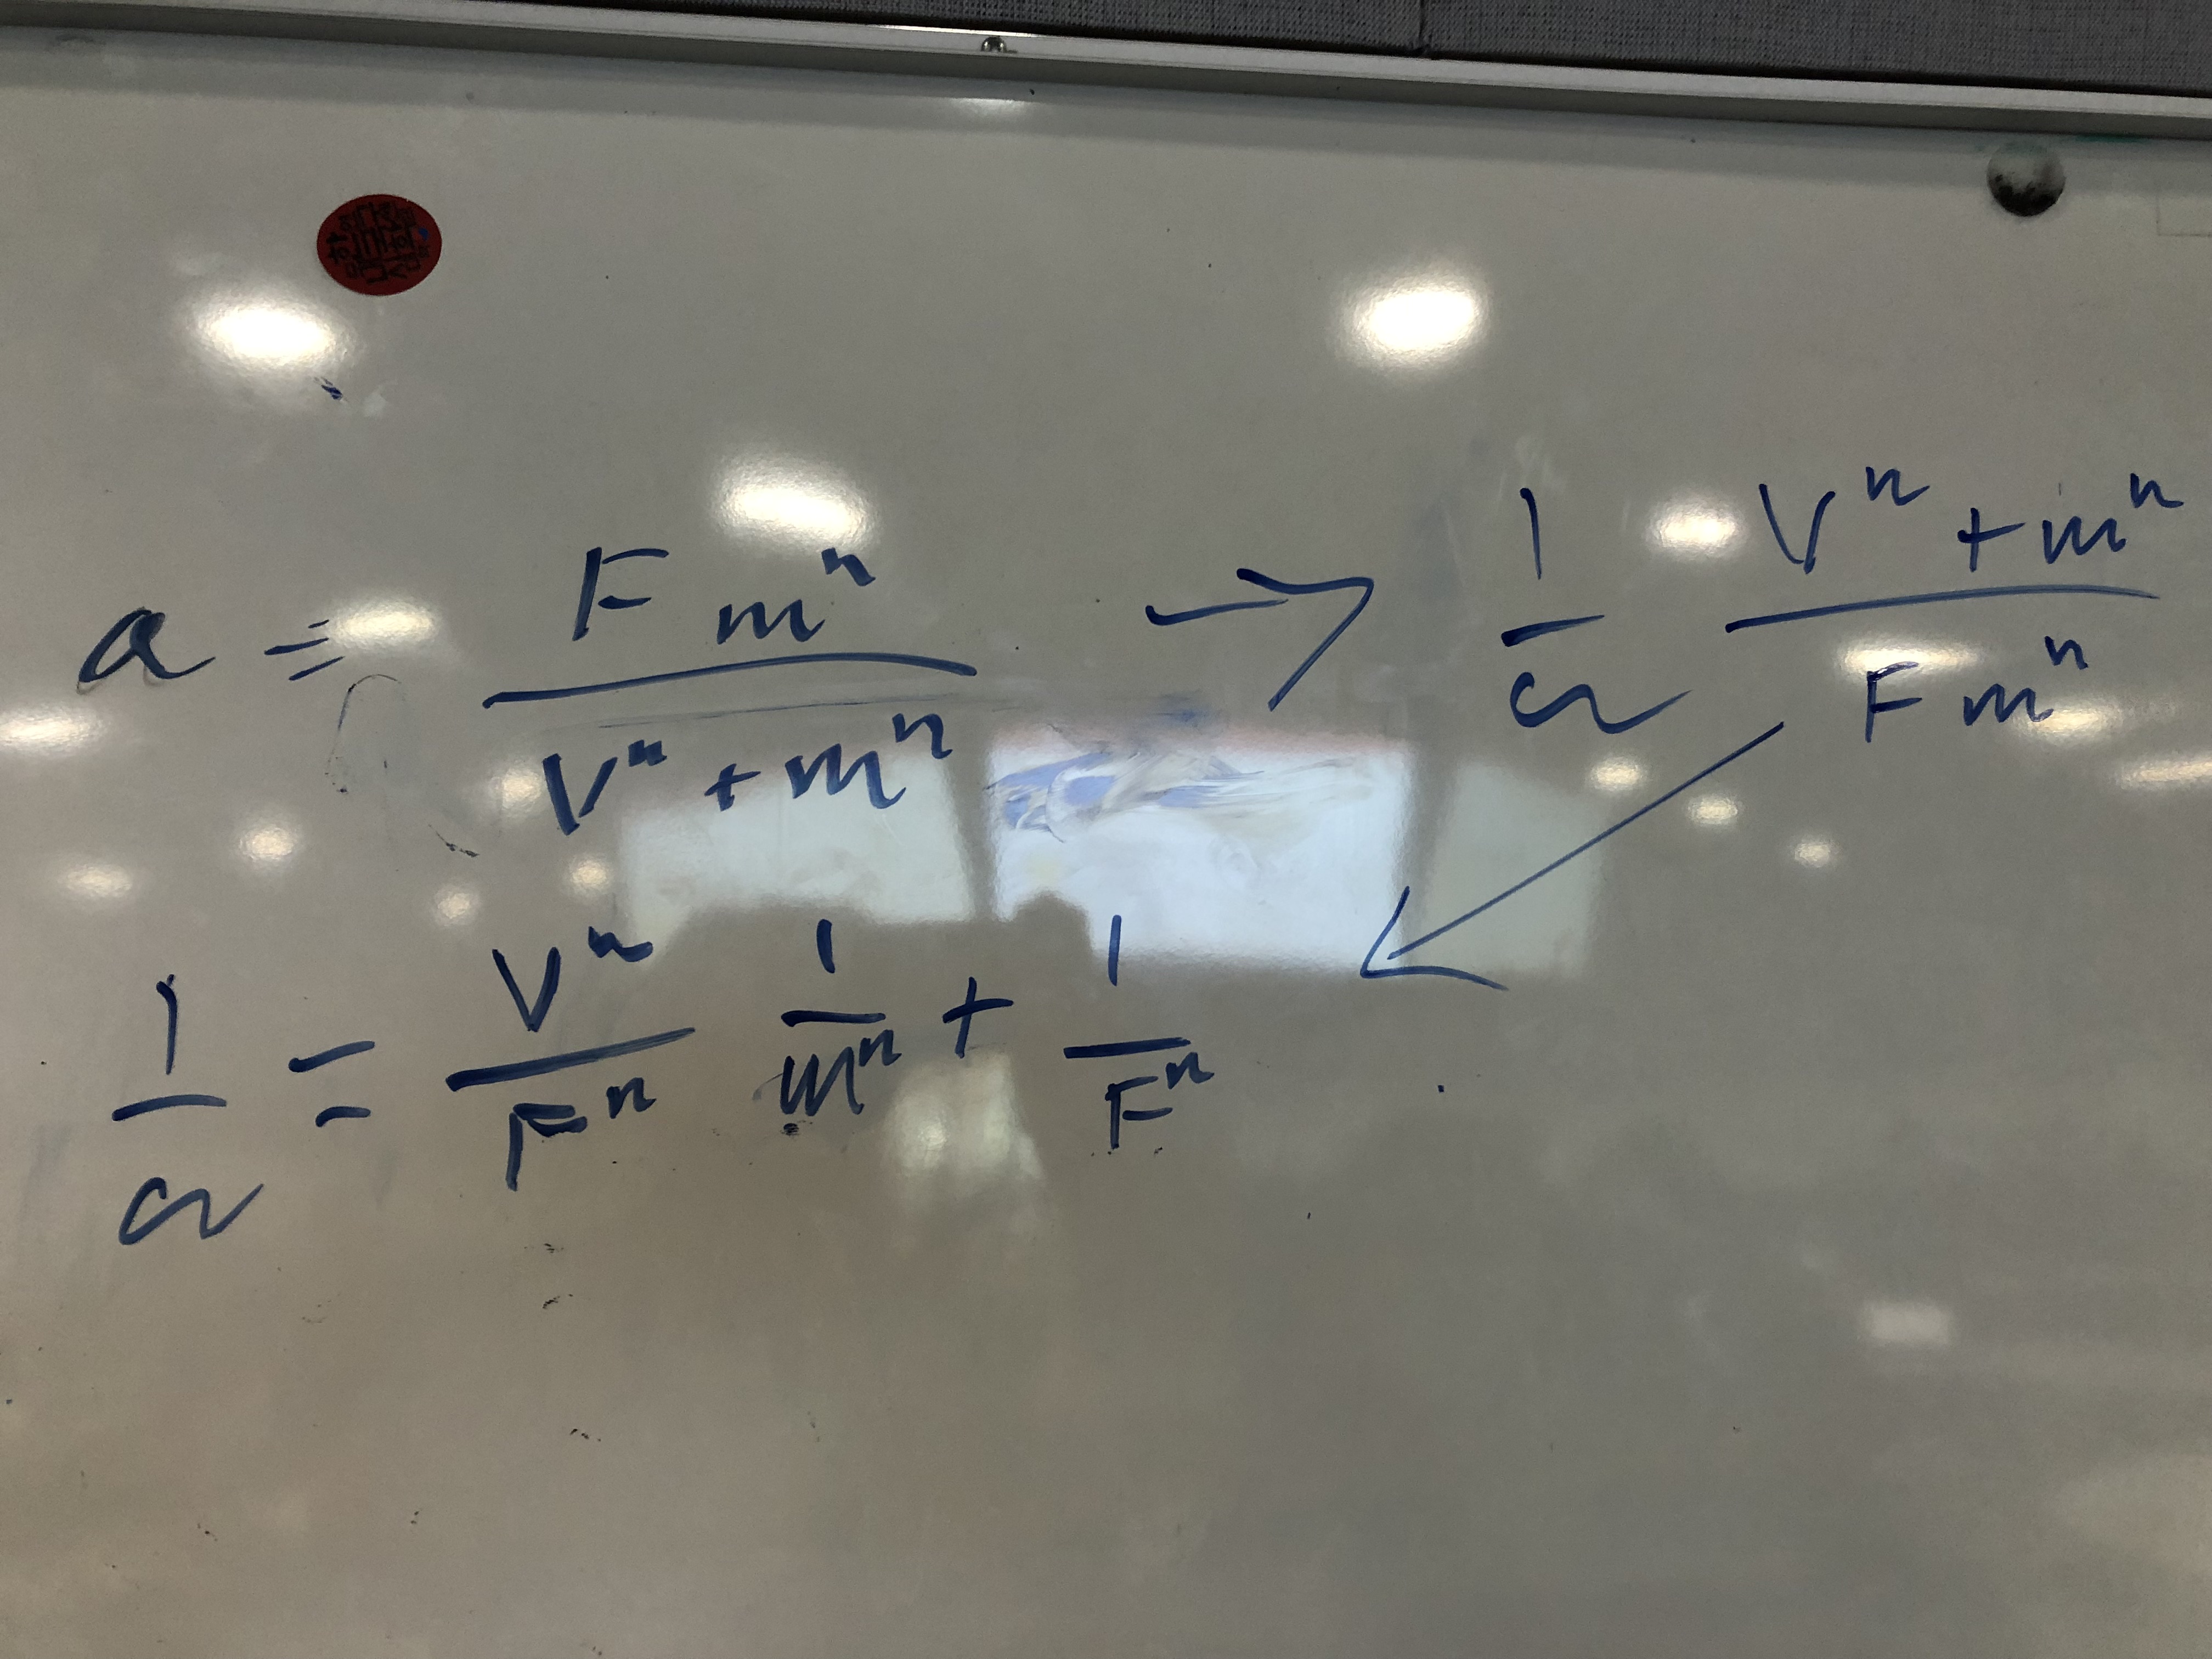 a = F mⁿ / Vⁿ + mⁿ → 1 / a Vⁿ + mⁿ / F mⁿ
1 / a = Vⁿ / Fⁿ 1 / mⁿ + 1 / Fⁿ